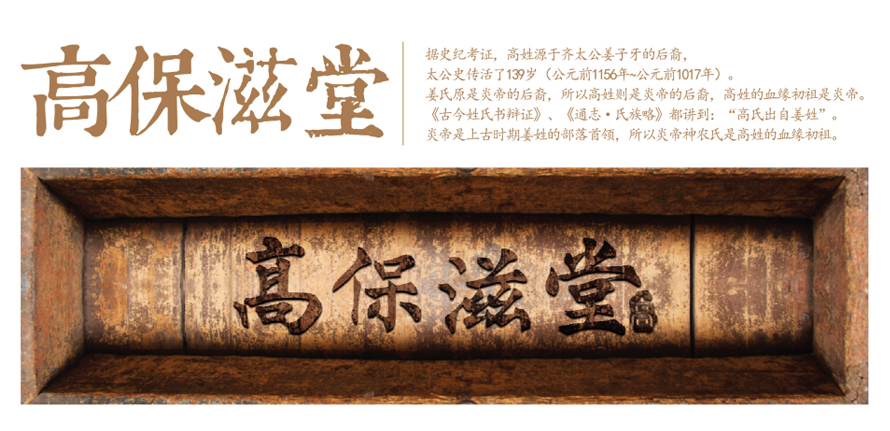 高保滋堂
据史纪考证，高姓源于齐太公姜子牙的后裔，
太公史传活了139岁（公元前1156年~公元前1017年）。
姜氏原是炎帝的后裔，所以高姓则是炎帝的后裔，高姓的血缘初祖是炎帝。
《古今姓氏书辩证》、《通志·氏族略》都讲到：“高氏出自姜姓”。
炎帝是上古时期姜姓的部落首领，所以炎帝神农氏是高姓的血缘初祖。
高保滋堂